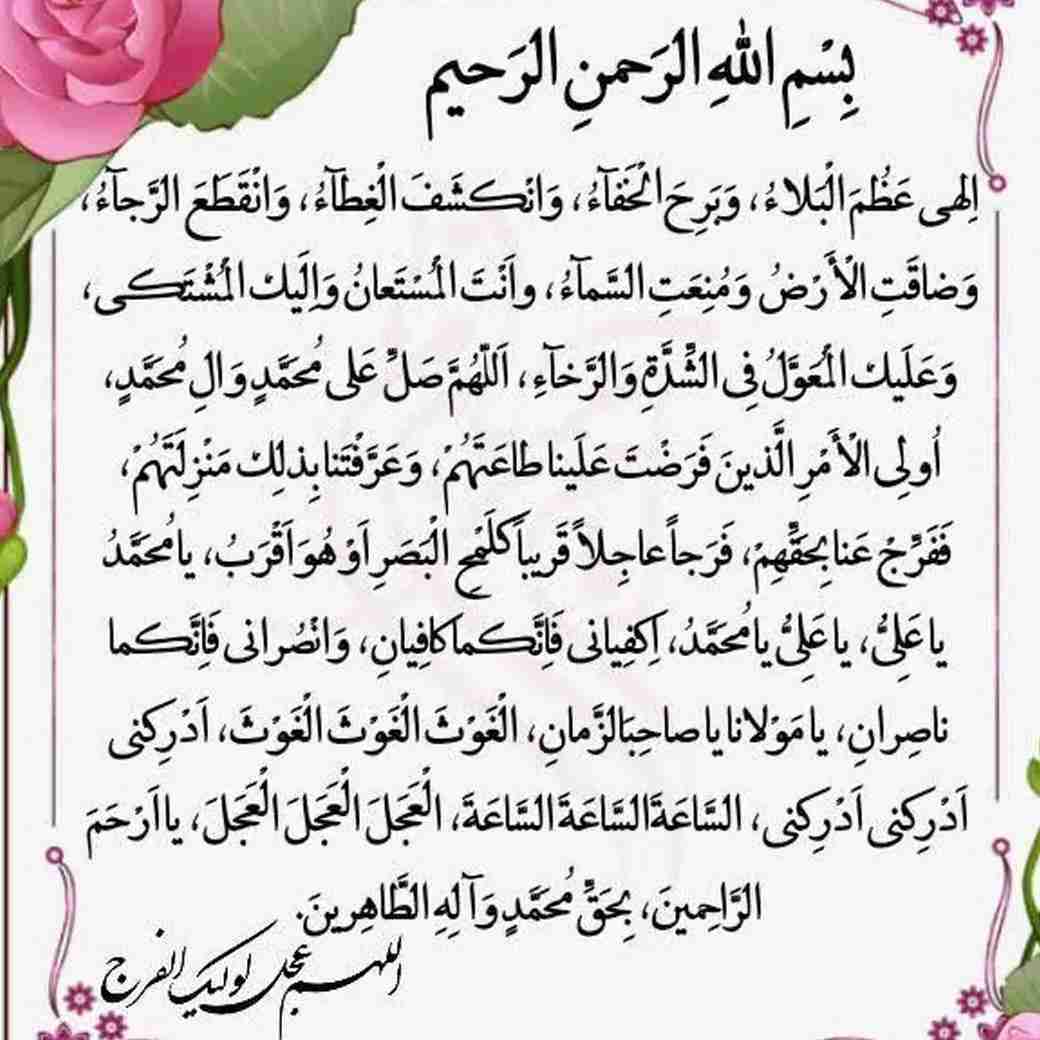 بِسْمِ اللهِ الرَحمنِ الرَحیم
اِلهى عَظُمَ الْبَلاءُ، وَبَرِحَ الْخَفآءُ، وَانْكَشَفَ الْغِطآءُ، وَانْقَطَعَ الرَّجآءُ،
وَضاقَتِ الْأَرْضُ وَمُنِعَتِ السَّمآءُ، واَنْتَ الْمُسْتَعانُ وَاِلَيكَ الْمُشْتَكى،
وَعَلَيكَ الْمُعَوَّلُ فِى الشِّدَّةِ وَالرَّخآءِ، اَللّهُمَّ صَلِّ عَلى مُحَمَّدٍ وَالِ مُحَمَّدٍ،
اُولِى الْأَمْرِ الَّذينَ فَرَضْتَ عَلَينا طاعَتَهُمْ، وَعَرَّفْتَنا بِذلِكَ مَنْزِلَتَهُمْ،
فَفَرِّجْ عَنا بِحَقِّهِمْ، فَرَجاً عاجِلاً قَريباً كَلَمْحِ الْبَصَرِ اَوْ هُوَ اَقْرَبُ، يا مُحَمَّدُ
يا عَلِىُّ، يا عَلِىُّ يا مُحَمَّدُ، اِكفِيانى فَاِنَّكُما كافِيانِ، وَانْصُرانى فَاِنَّكُما
ناصِرانِ، يا مَوْلانا يا صاحِبَ الزَّمانِ، الْغَوْثَ الْغَوْثَ الْغَوْثَ، اَدْرِكنى
اَدْرِكنى اَدْرِكنى، السَّاعَةَ السَّاعَةَ السَّاعَةَ، الْعَجَلَ الْعَجَلَ الْعَجَلَ، يا اَرْحَمَ
الرَّاحِمينَ، بِحَقِّ مُحَمَّدٍ وَآلِهِ الطَّاهِرينَ.
اللهم عجل لولیک الفرج